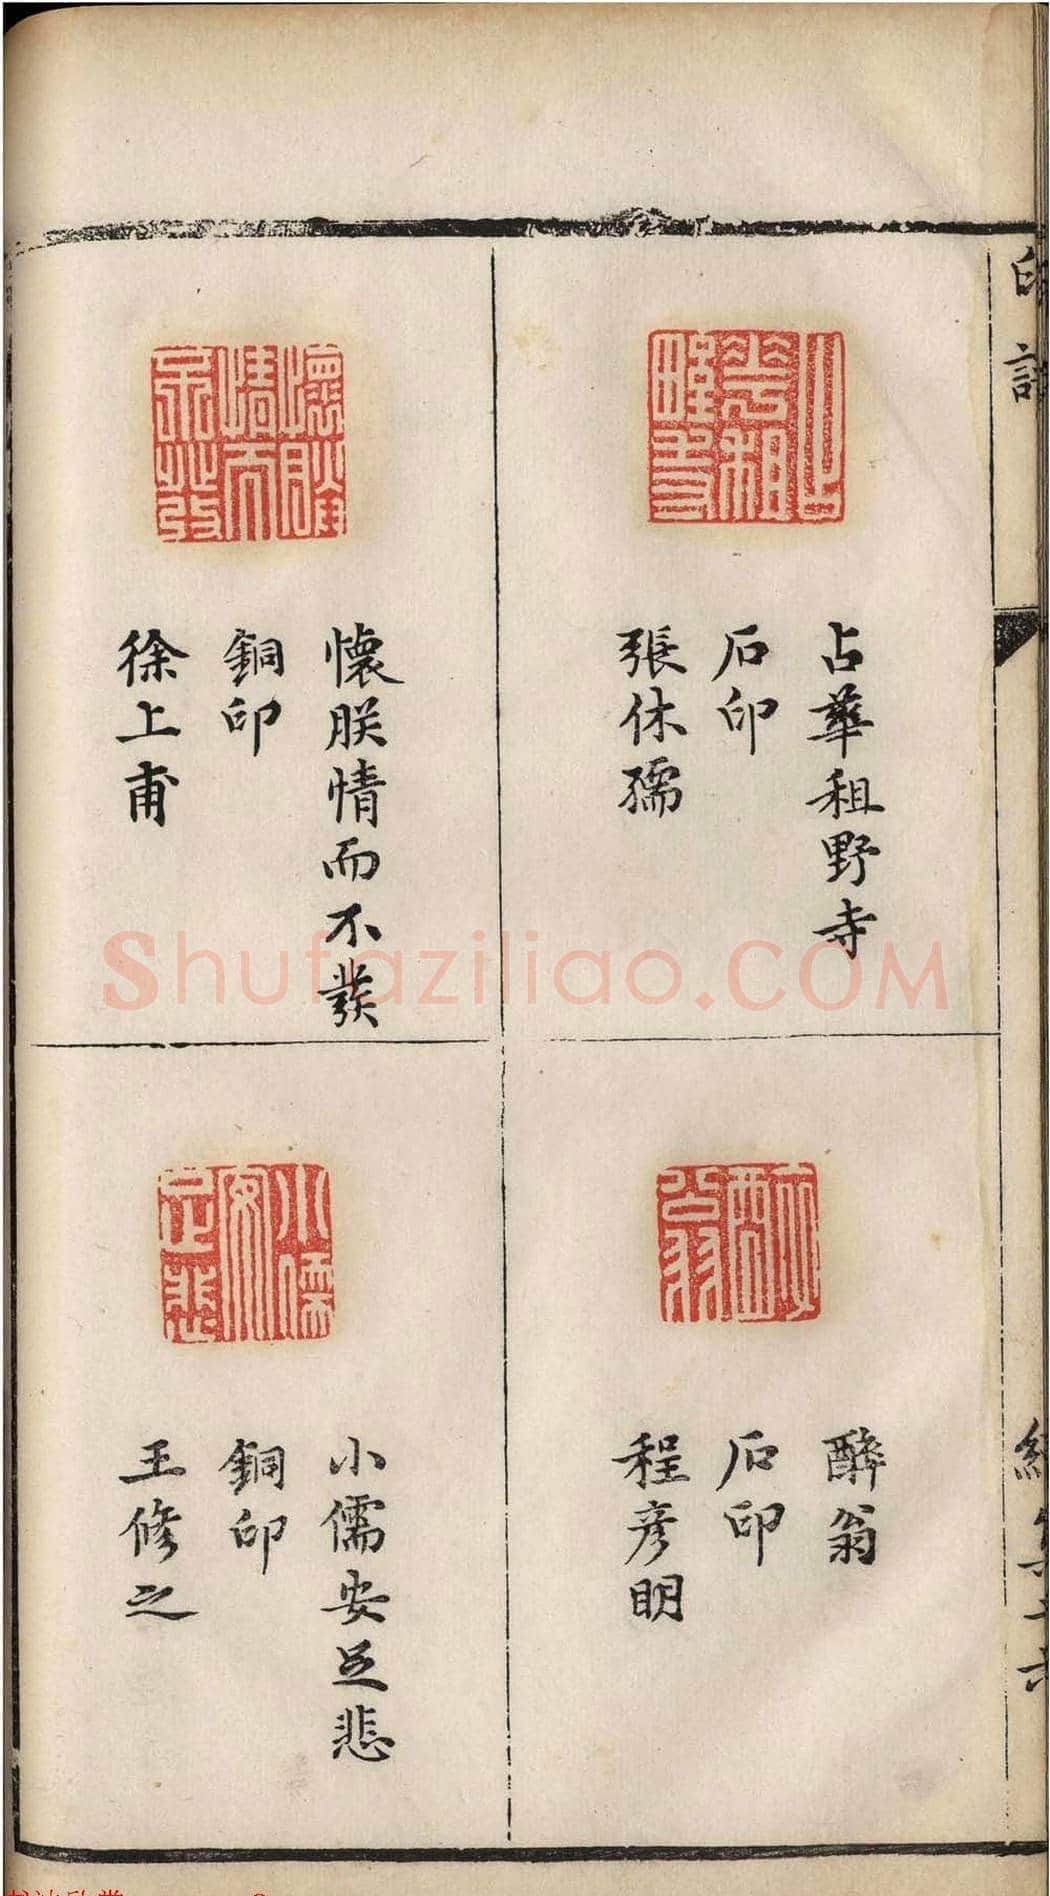 占華租野寺
石印
張休孺
醉翁
石印
程彥明
懷朕情而不發
銅印
徐上甫
小儒安足悲
銅印
王修之
Shufaziliao.COM